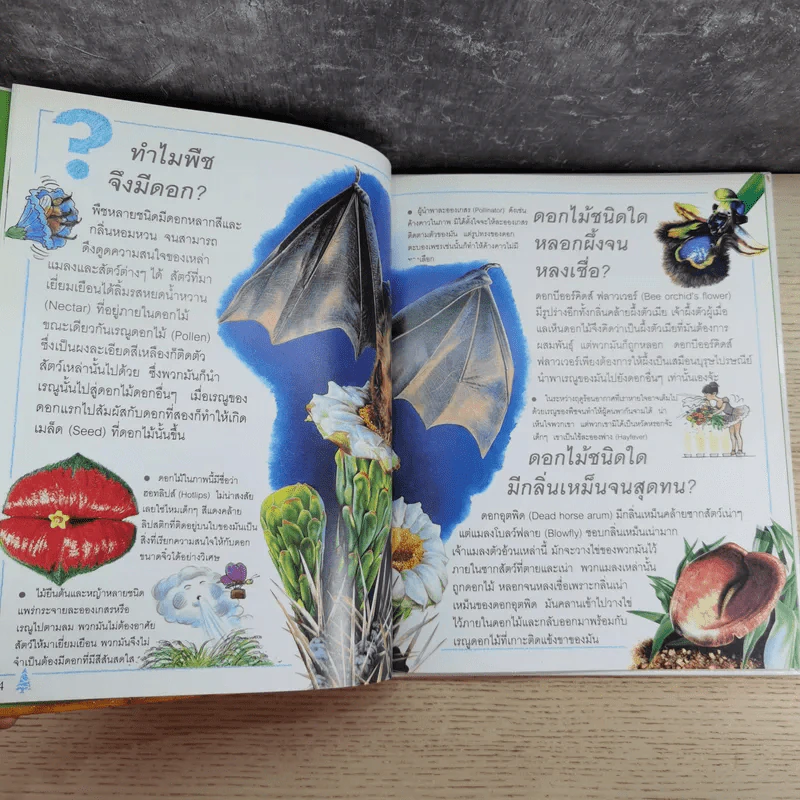 ?
ทำไมพืช
จึงมีดอก?
พืชหลายชนิดมีดอกหลากสีและ
กลิ่นหอมหวน จนสามารถ
ดึงดูดความสนใจของเหล่า
แมลงและสัตว์ต่างๆ ได้ สัตว์ที่มา
เยี่ยมเยือนได้ลิ้มรสหยดน้ำหวาน
(Nectar) ที่อยู่ภายในดอกไม้
ขณะเดียวกันเรณูดอกไม้ (Pollen)
ซึ่งเป็นผงละเอียดสีเหลืองก็ติดตัว
สัตว์เหล่านั้นไปด้วย ซึ่งพวกมันก็นำ
เรณูนั้นไปสู่ดอกไม้ดอกอื่นๆ เมื่อเรณูของ
ดอกแรกไปสัมผัสกับดอกที่สองก็ทำให้เกิด
เมล็ด (Seed) ที่ดอกไม้นั้นขึ้น
● ดอกไม้ในภาพนี้มีชื่อว่า
ฮอทลิปส์ (Hotlips) ไม่น่าสงสัย
เลยใช่ไหมเด็กๆ สีแดงคล้าย
ลิปสติกที่ติดอยู่บนใบของมันเป็น
สิ่งที่เรียกความสนใจให้กับดอก
ขนาดจิ๋วได้อย่างวิเศษ
● ไม้ยืนต้นและหญ้าหลายชนิด
แพร่กระจายละอองเกสรหรือ
เรณูไปตามลม พวกมันไม่ต้องอาศัย
สัตว์ให้มาเยี่ยมเยือน พวกมันจึงไม่
จำเป็นต้องมีดอกที่มีสีสันสดใส
4
● ผู้นำพาละอองเกสร (Pollinator) ดังเช่น
ค้างคาวในภาพ มิได้ตั้งใจจะให้ละอองเกสร
ติดตามตัวของมัน แต่รูปทรงของดอก
ตะบองเพชรเช่นนั้นก็ทำให้ค้างคาวไม่มี
ดอกไม้ชนิดใด
หลอกผึ้งจน
หลงเชื่อ?
ดอกบีออร์คิดส์ ฟลาวเวอร์ (Bee orchid's flower)
มีรูปร่างอีกทั้งกลิ่นคล้ายผึ้งตัวเมีย เจ้าผึ้งตัวผู้เมื่อ
แลเห็นดอกไม้จึงคิดว่าเป็นผึ้งตัวเมียที่มันต้องการ
ผสมพันธุ์ แต่พวกมันก็ถูกหลอก ดอกบีออร์คิดส์
ฟลาวเวอร์เพียงต้องการให้ผึ้งเป็นเสมือนบุรุษไปรษณีย์
นำพาเรณูของมันไปยังดอกอื่นๆ เท่านั้นเองจ้ะ
● ในระหว่างฤดูร้อนอากาศที่เราหายใจอาจเต็มไป
ด้วยเรณูของพืชจนทำให้ผู้คนพากันจามได้ น่า
เห็นใจพวกเขา แต่พวกเขามิได้เป็นหวัดหรอกจ้ะ
เด็กๆ เขาเป็นไข้ละอองฟาง (Hayfever)
ดอกไม้ชนิดใด
มีกลิ่นเหม็นจนสุดทน?
ดอกอุตพิด (Dead horse arum) มีกลิ่นเหม็นคล้ายซากสัตว์เน่าๆ
แต่แมลงโบลว์ฟลาย (Blowfly) ชอบกลิ่นเหม็นเน่ามาก
เจ้าแมลงตัวอ้วนเหล่านี้ มักจะวางไข่ของพวกมันไว้
ภายในซากสัตว์ที่ตายและเน่า พวกแมลงเหล่านั้น
ถูกดอกไม้ หลอกจนหลงเชื่อเพราะกลิ่นเน่า
เหม็นของดอกอุตพิด มันคลานเข้าไปวางไข่
ไว้ภายในดอกไม้และกลับออกมาพร้อมกับ
เรณูดอกไม้ที่เกาะติดแข้งขาของมัน